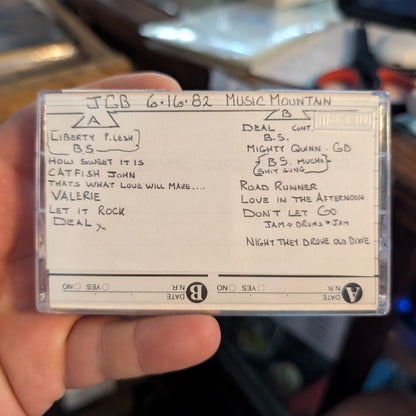 JGB 6·16·82 MUSIC MOUNTAIN
A
LIBERTY P. LESH
B.S.
HOW SWEET IT IS
CATFISH JOHN
THATS WHAT LOVE WILL MAKE....
VALERIE
LET IT ROCK
DEAL
B
DEAL CONT.
B.S.
MIGHTY QUINN - GD
B.S. MUCHO
SHIT SONG
ROAD RUNNER
LOVE IN THE AFTERNOON
DON'T LET GO
JAM → DRUMS → JAM
NIGHT THEY DROVE OLD DIXIE
A DATE N.R. YES NO
B DATE N.R. YES NO